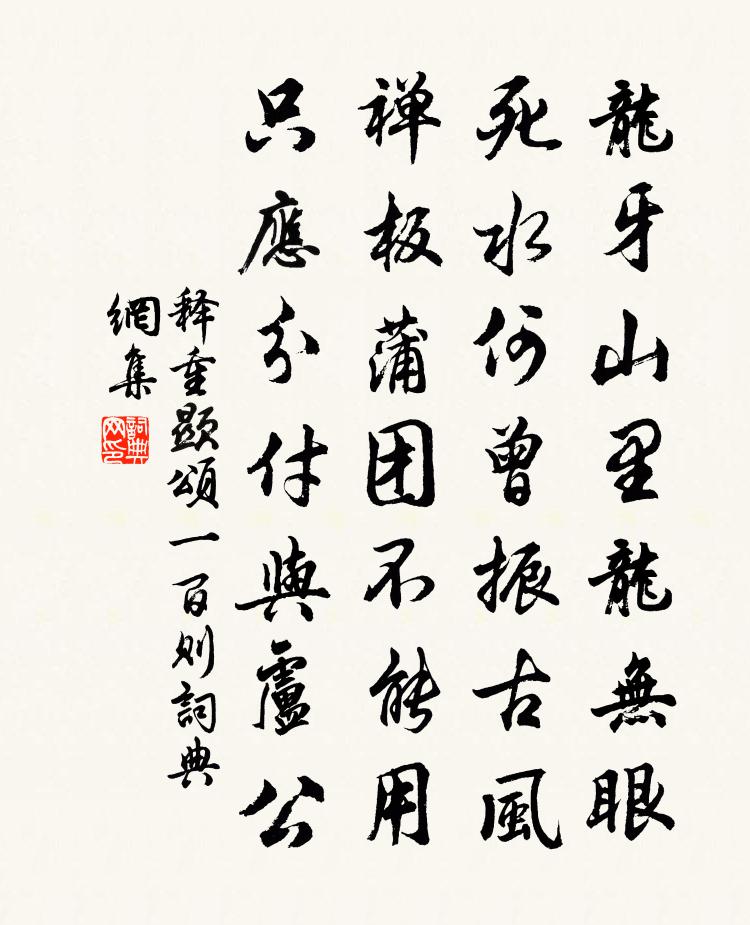 龍牙山里龍無眼
死水何曾振古風
禅板蒲团不能用
只應分付與盧公
释重顯頌一百则詞典
網集
詞典
网印